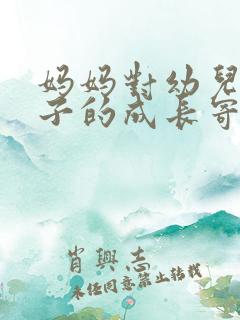 妈妈對幼兒
子的成長寄
肖興志
未经同意禁止转载